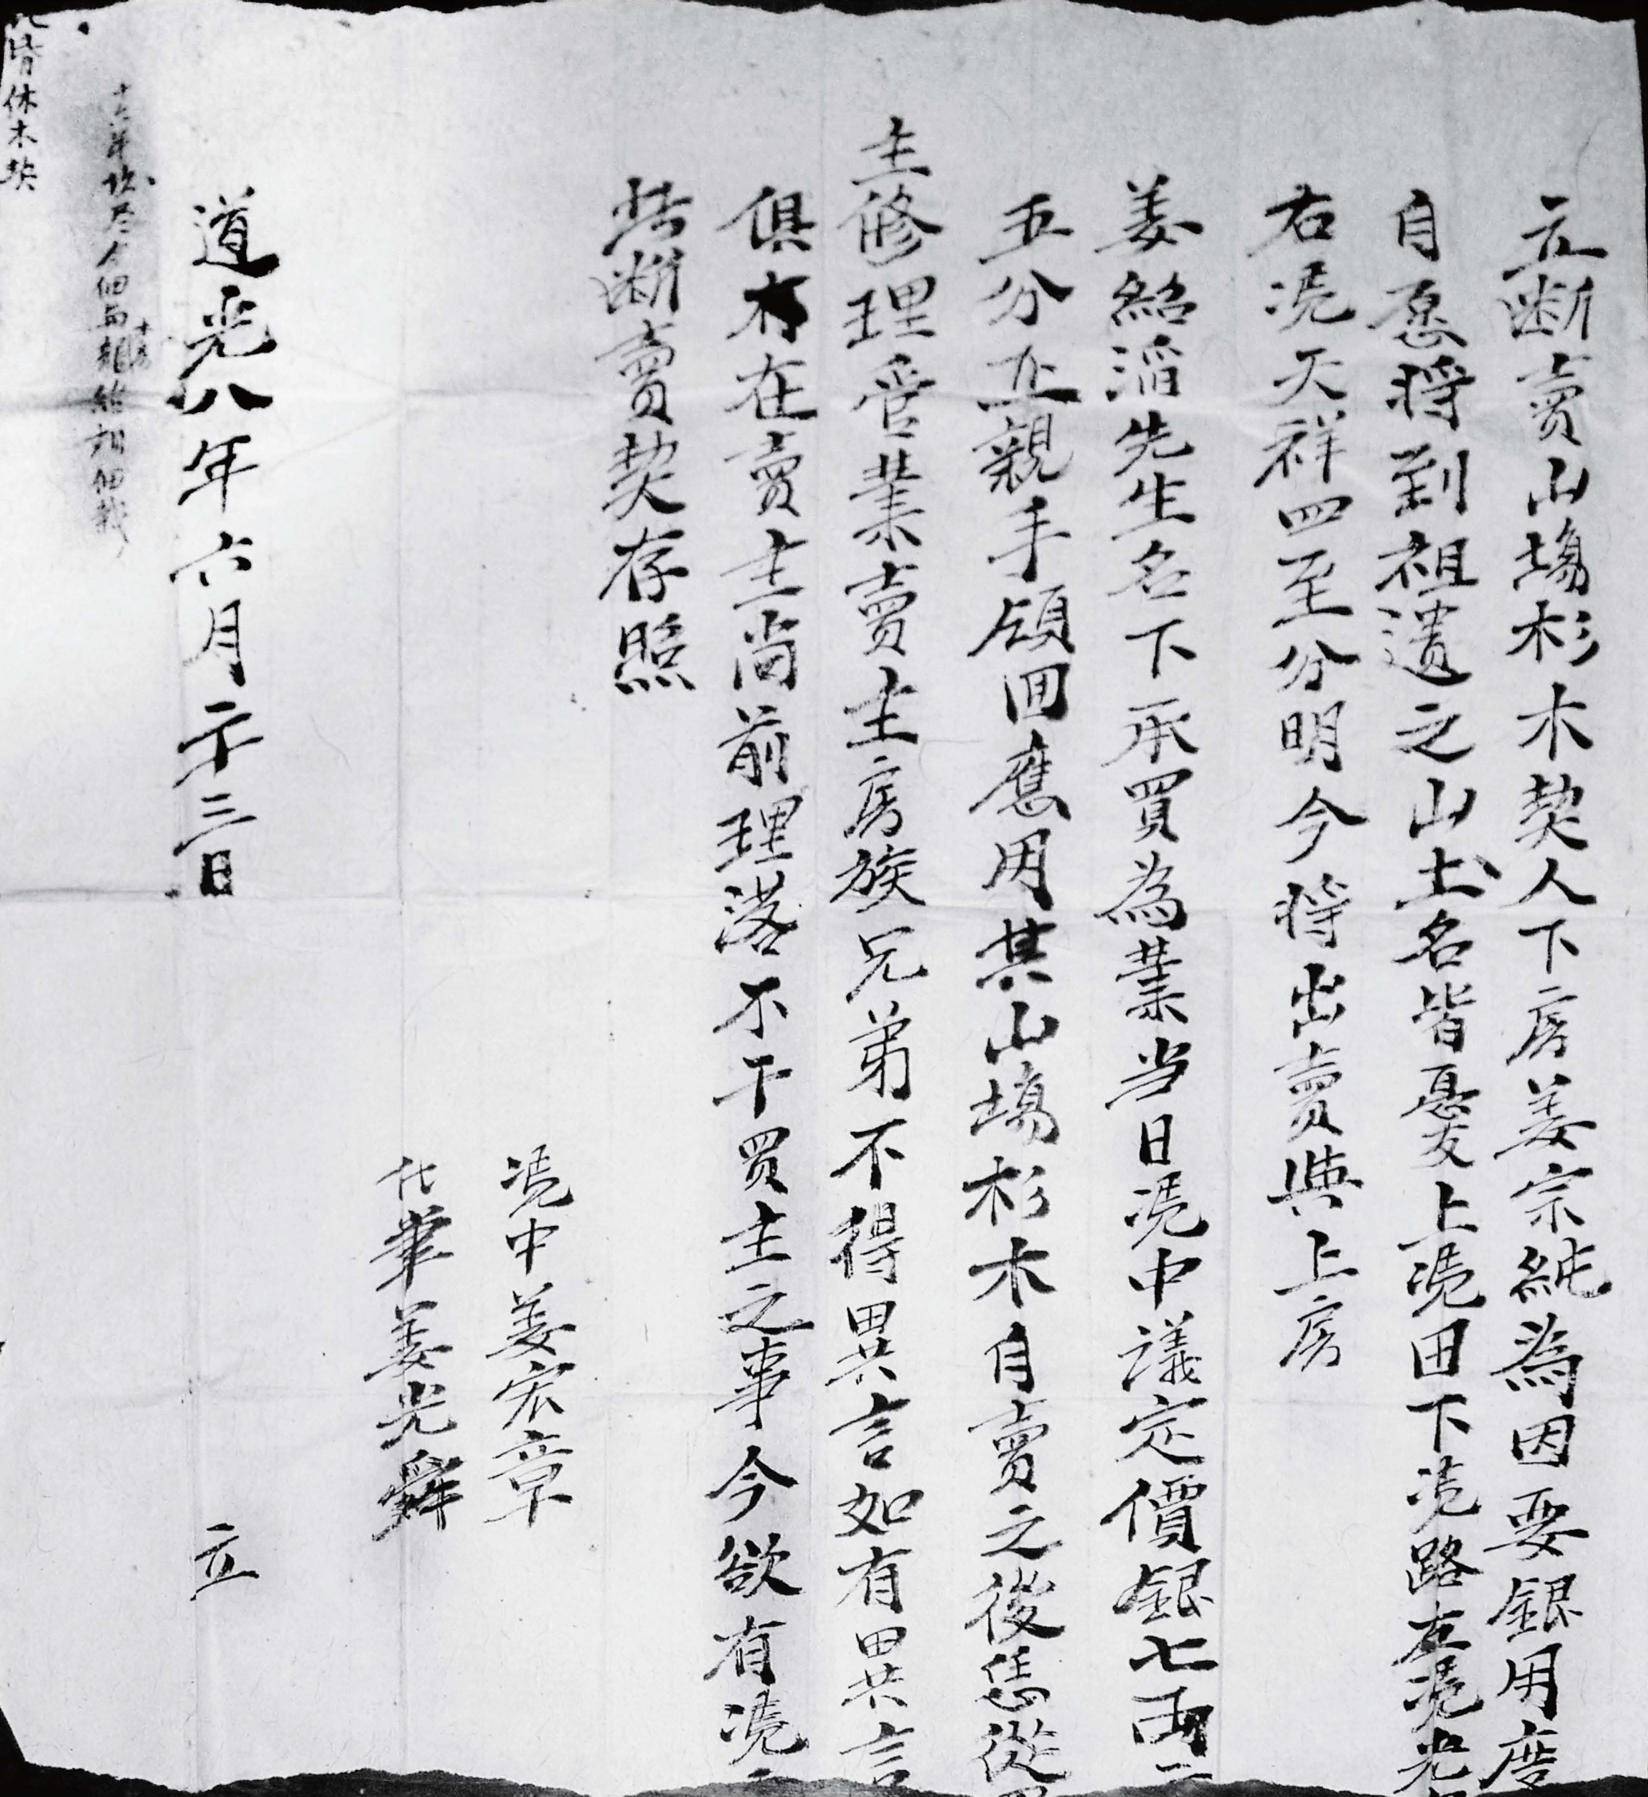 立断賣山塲杉木契人下房姜宗純為因要銀用度
自愿將到祖遗之山土名皆憂上凴田下凴路左凴光
右凴天祥四至分明今將出賣與上房
姜紹滔先生名下承買為業当日凴中議定價銀七両二
五分正親手領回應用其山塲杉木自賣之後恁從買
主修理管業賣主房族兄弟不得異言如有異言
俱有在賣主尚前理落不干買主之事今欲有凴
此断賣契存照
凴中姜宏章
代筆姜光舜
道光八年六月二十三日 立
皆休木契